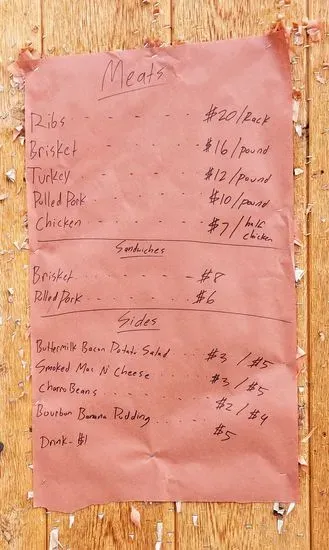 Meats
Ribs - - - - $20/Rack
Brisket - - - - $16/pound
Turkey - - - - $12/pound
Pulled Pork - - - - $10/pound
Chicken - - - - $7/half chicken
Sandwiches
Brisket - - - - $8
Pulled Pork - - - - $6
Sides
Buttermilk Bacon Potato Salad - - $3/$5
Smoked Mac N' Cheese - - - - $3/$5
Charro Beans - - - - $2/$4
Bourbon Banana Pudding - - - - $5
Drink-$1